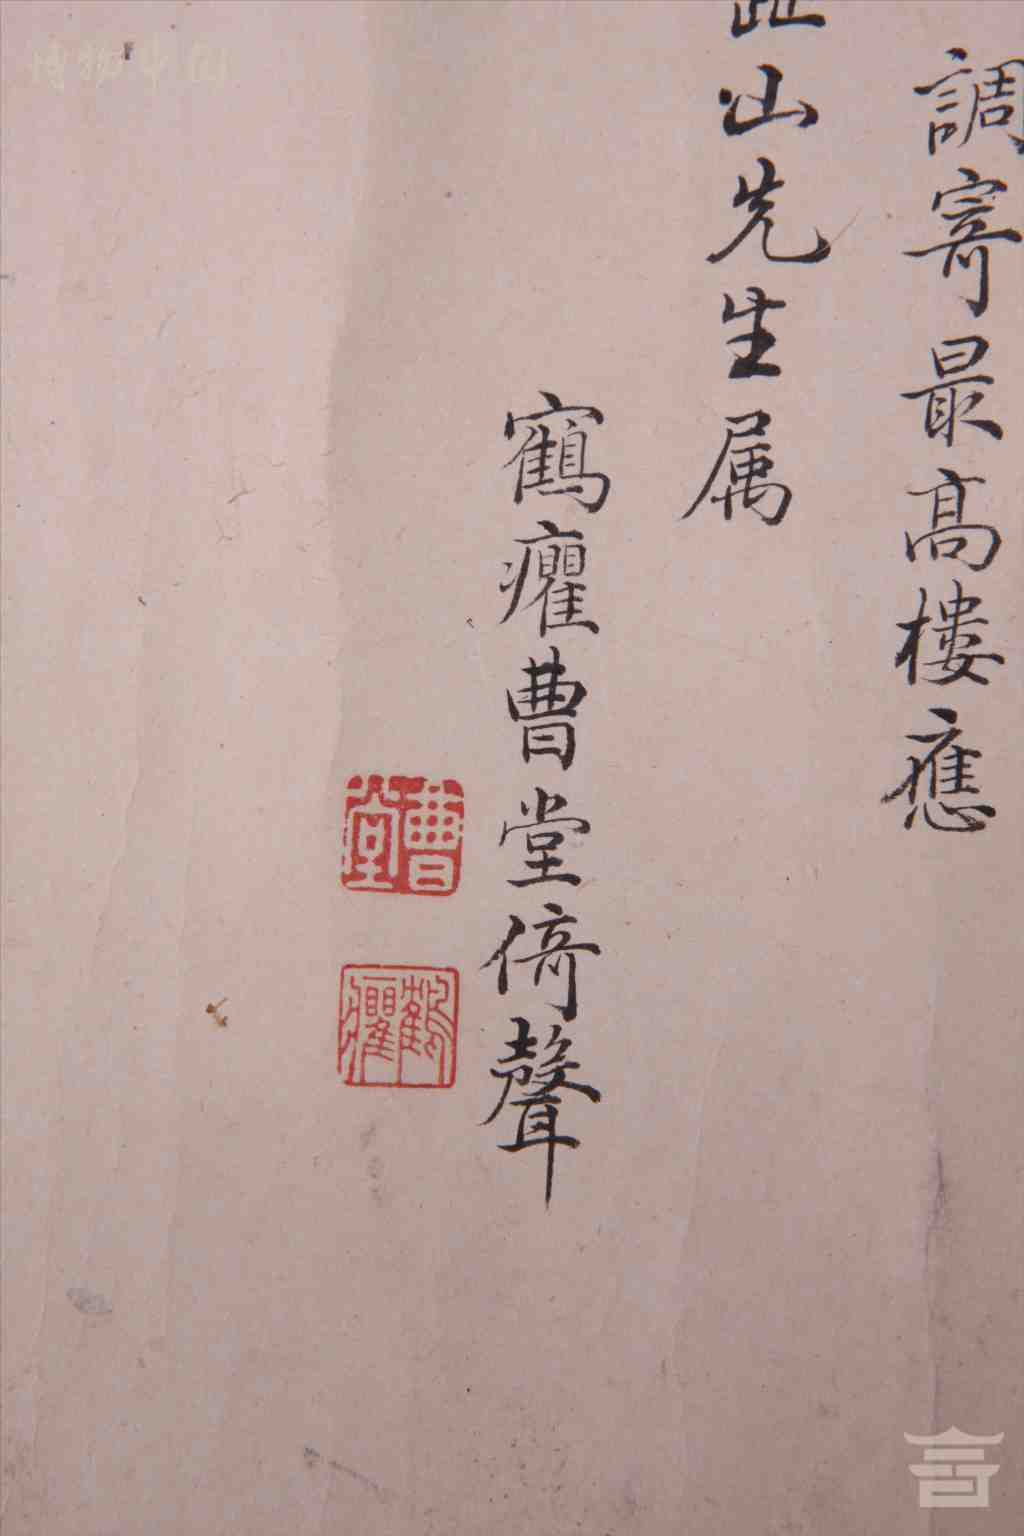 調寄最高樓應
山先生属
鶴癯曹堂倚聲
曹堂
鶴癯
博物中国